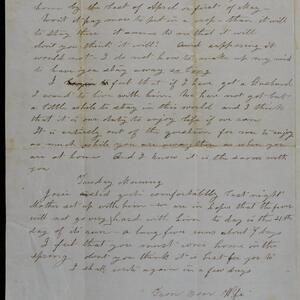 home by the last of April or first of May -
Won't it pay more to put in a crop than it will
to stay there it seems to me that it will
don't you think it will? And supposing it
would not I do not know how to make up my mind
to have you stay away so long
I feel that if I have got a husband
I want to live with him. We have not got but
a little while to stay in this world and I think
that it is our duty to enjoy life if we can
It is entirely out of the question for me to enjoy
as much while you are away from as when you
are at home And I know it is the same with
you
Tuesday Morning
Josie rested quite comfortably last night
Mother sat up with him we are in hopes that the fever
will not go very hard with him to day is the 4th
day of its run - a lung fever runs about 9 days
I feel that you must come home in the
spring don't you think it is best for you to
I shall write again in a few days
From Your Wife